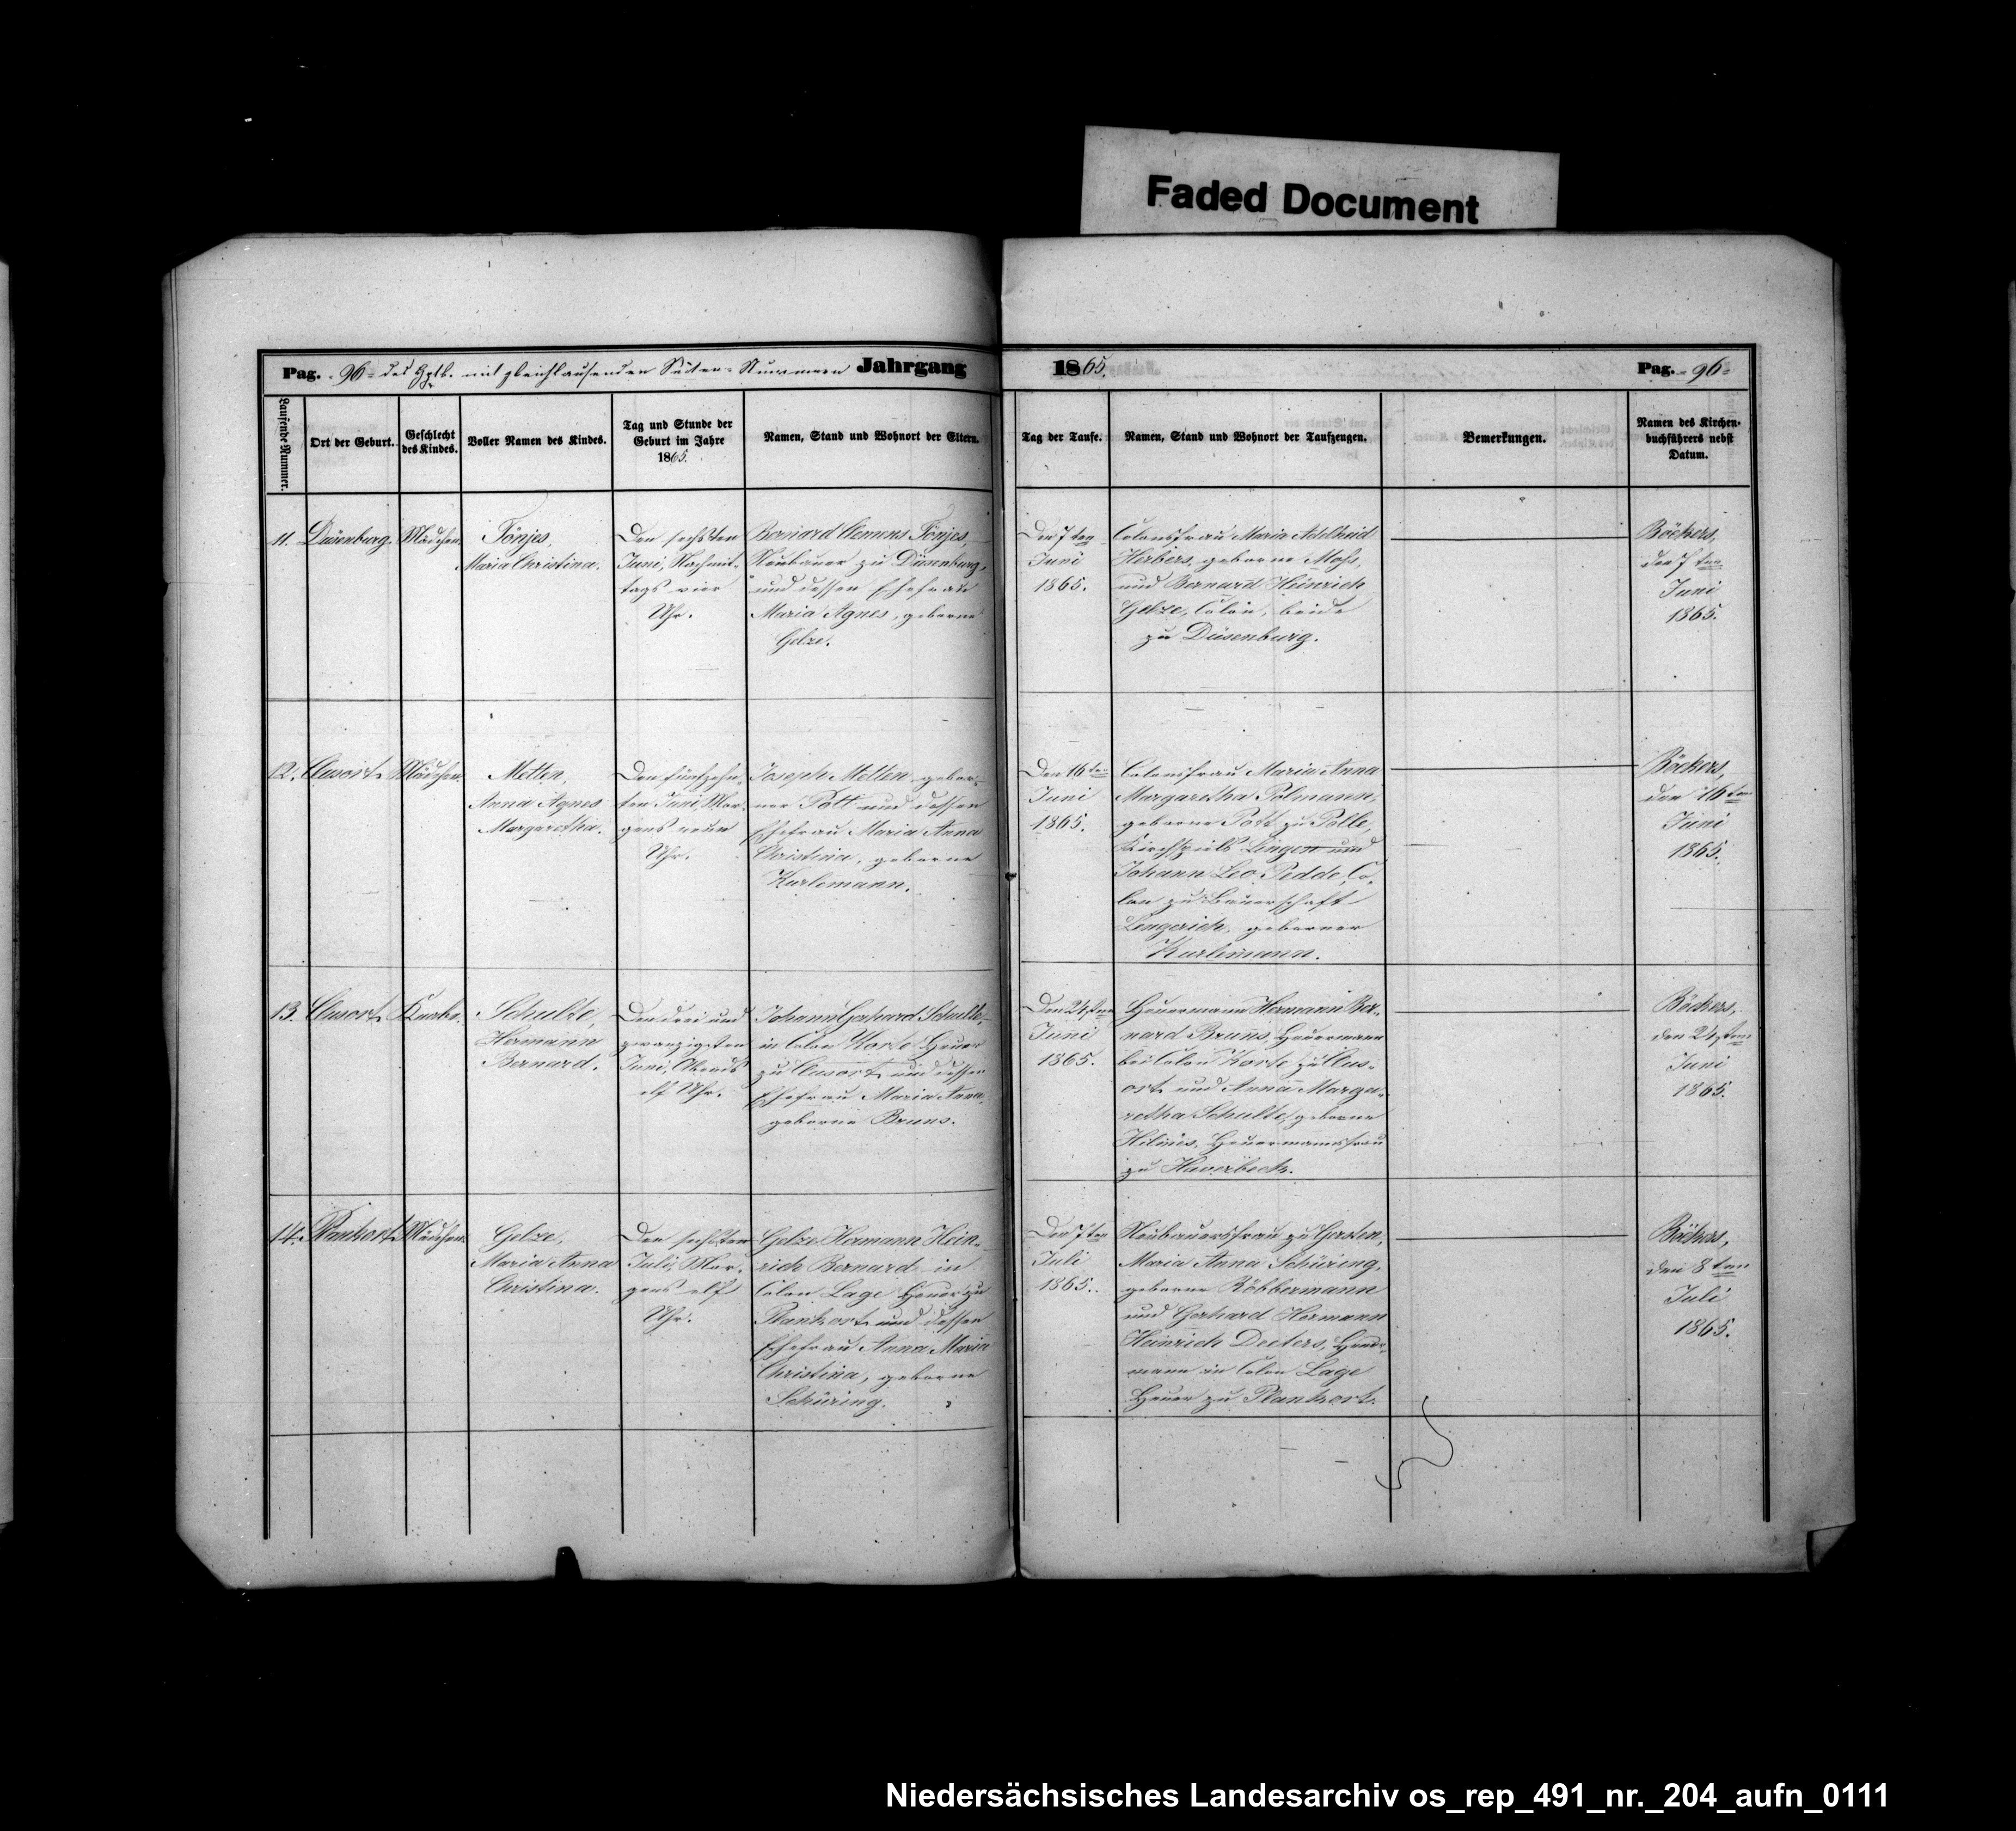 Faded Document
Pag. 96 des Hptb. mit gleichlaufenden Seiten-Nummern Jahrgang 1865. Pag. 96
Laufende Nummer.
Ort der Geburt.
Geschlecht
des Kindes.
Voller Namen des Kindes.
Tag und Stunde der
Geburt im Jahre
1865.
Namen, Stand und Wohnort der Eltern.
Tag der Taufe.
Namen, Stand und Wohnort der Taufzeugen.
Bemerkungen.
Namen des Kirchen-
buchführers nebst
Datum.
11.
Düsenburg.
Mädchen.
Tönjes,
Maria Christina.
Den sechsten
Juni, Nachmit-
tags vier
Uhr.
Bernard Clemens Tönjes
Neubauer zu Düsenburg,
und dessen Ehefrau
Maria Agnes, geborne
Gelze.
Den 7ten
Juni
1865.
Colonsfrau Maria Adelheid
Herbers, geborne Moss,
und Bernard Heinrich
Gelze, Colon, beide
zu Düsenburg.
Böckers,
den 7ten
Juni
1865.
12.
Clusort.
Mädchen.
Metten,
Anna Agnes
Margaretha.
Den fünfzehn-
ten Juni, Mor-
gens neun
Uhr.
Joseph Metten gebor-
ner Pott und dessen
Ehefrau Maria Anna
Christina, geborne
Kurlemann.
Den 16ten
Juni
1865.
Colonsfrau Maria Anna
Margaretha Polmann,
geborne Pott zu Polle,
Kirchspiels Lingen und
Johann Leo Pedde, Co-
lon zu Bauerschaft
Lengerich, geborner
Kurlemann.
Böckers,
den 16ten
Juni
1865.
13.
Clusort.
Knabe.
Schulte,
Hermann
Bernard.
Den drei und
zwanzigsten
Juni, Abends
elf Uhr.
Johann Gerhard Schulte,
in Colon Korte Heuer
zu Clusort und dessen
Ehefrau Maria Anna,
geborne Bruns.
Den 24sten
Juni
1865.
Heuermann Hermann Ber-
nard Bruns, Heuermann
bei Colon Korte zu Clus-
ort und Anna Marga-
retha Schulte, geborne
Hilmes, Heuermannsfrau
zu Haverbeck.
Böckers,
den 24sten
Juni
1865.
14.
Plankort.
Mädchen.
Gelze,
Maria Anna
Christina.
Den sechsten
Juli, Mor-
gens elf
Uhr.
Gelze Hermann Hein-
rich Bernard in
Colon Lage Heuer zu
Plankort und dessen
Ehefrau Anna Maria
Christina, geborne
Schüring.
Den 7ten
Juli
1865.
Neubauersfrau zu Gersten,
Maria Anna Schüring,
geborne Röbbermann
und Gerhard Hermann
Heinrich Deeters, Heuer-
mann in Colon Lage
Heuer zu Plankort.
Böckers,
den 8ten
Juli
1865.
Niedersächsisches Landesarchiv os_rep_491_nr._204_aufn_0111